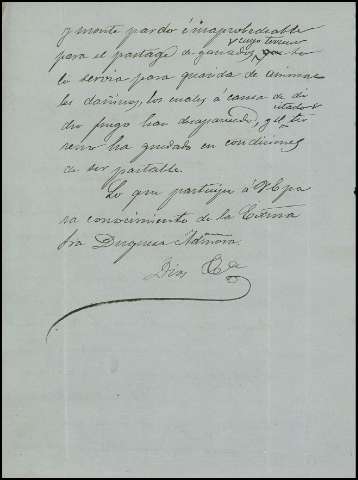 y monte pardo é inaprobechable
para el pastage de ganados, y cuyo terreno
lo servia para guarida de anima
les dañinos, los cuales á causa de di
cho fuego han desaparecido, y el citado ter
reno ha quedado en condiciones
de ser pastable.
Lo que participo á V. E. pa
ra conocimiento de la Exma
Sra Duquesa Admora.
Dios &a